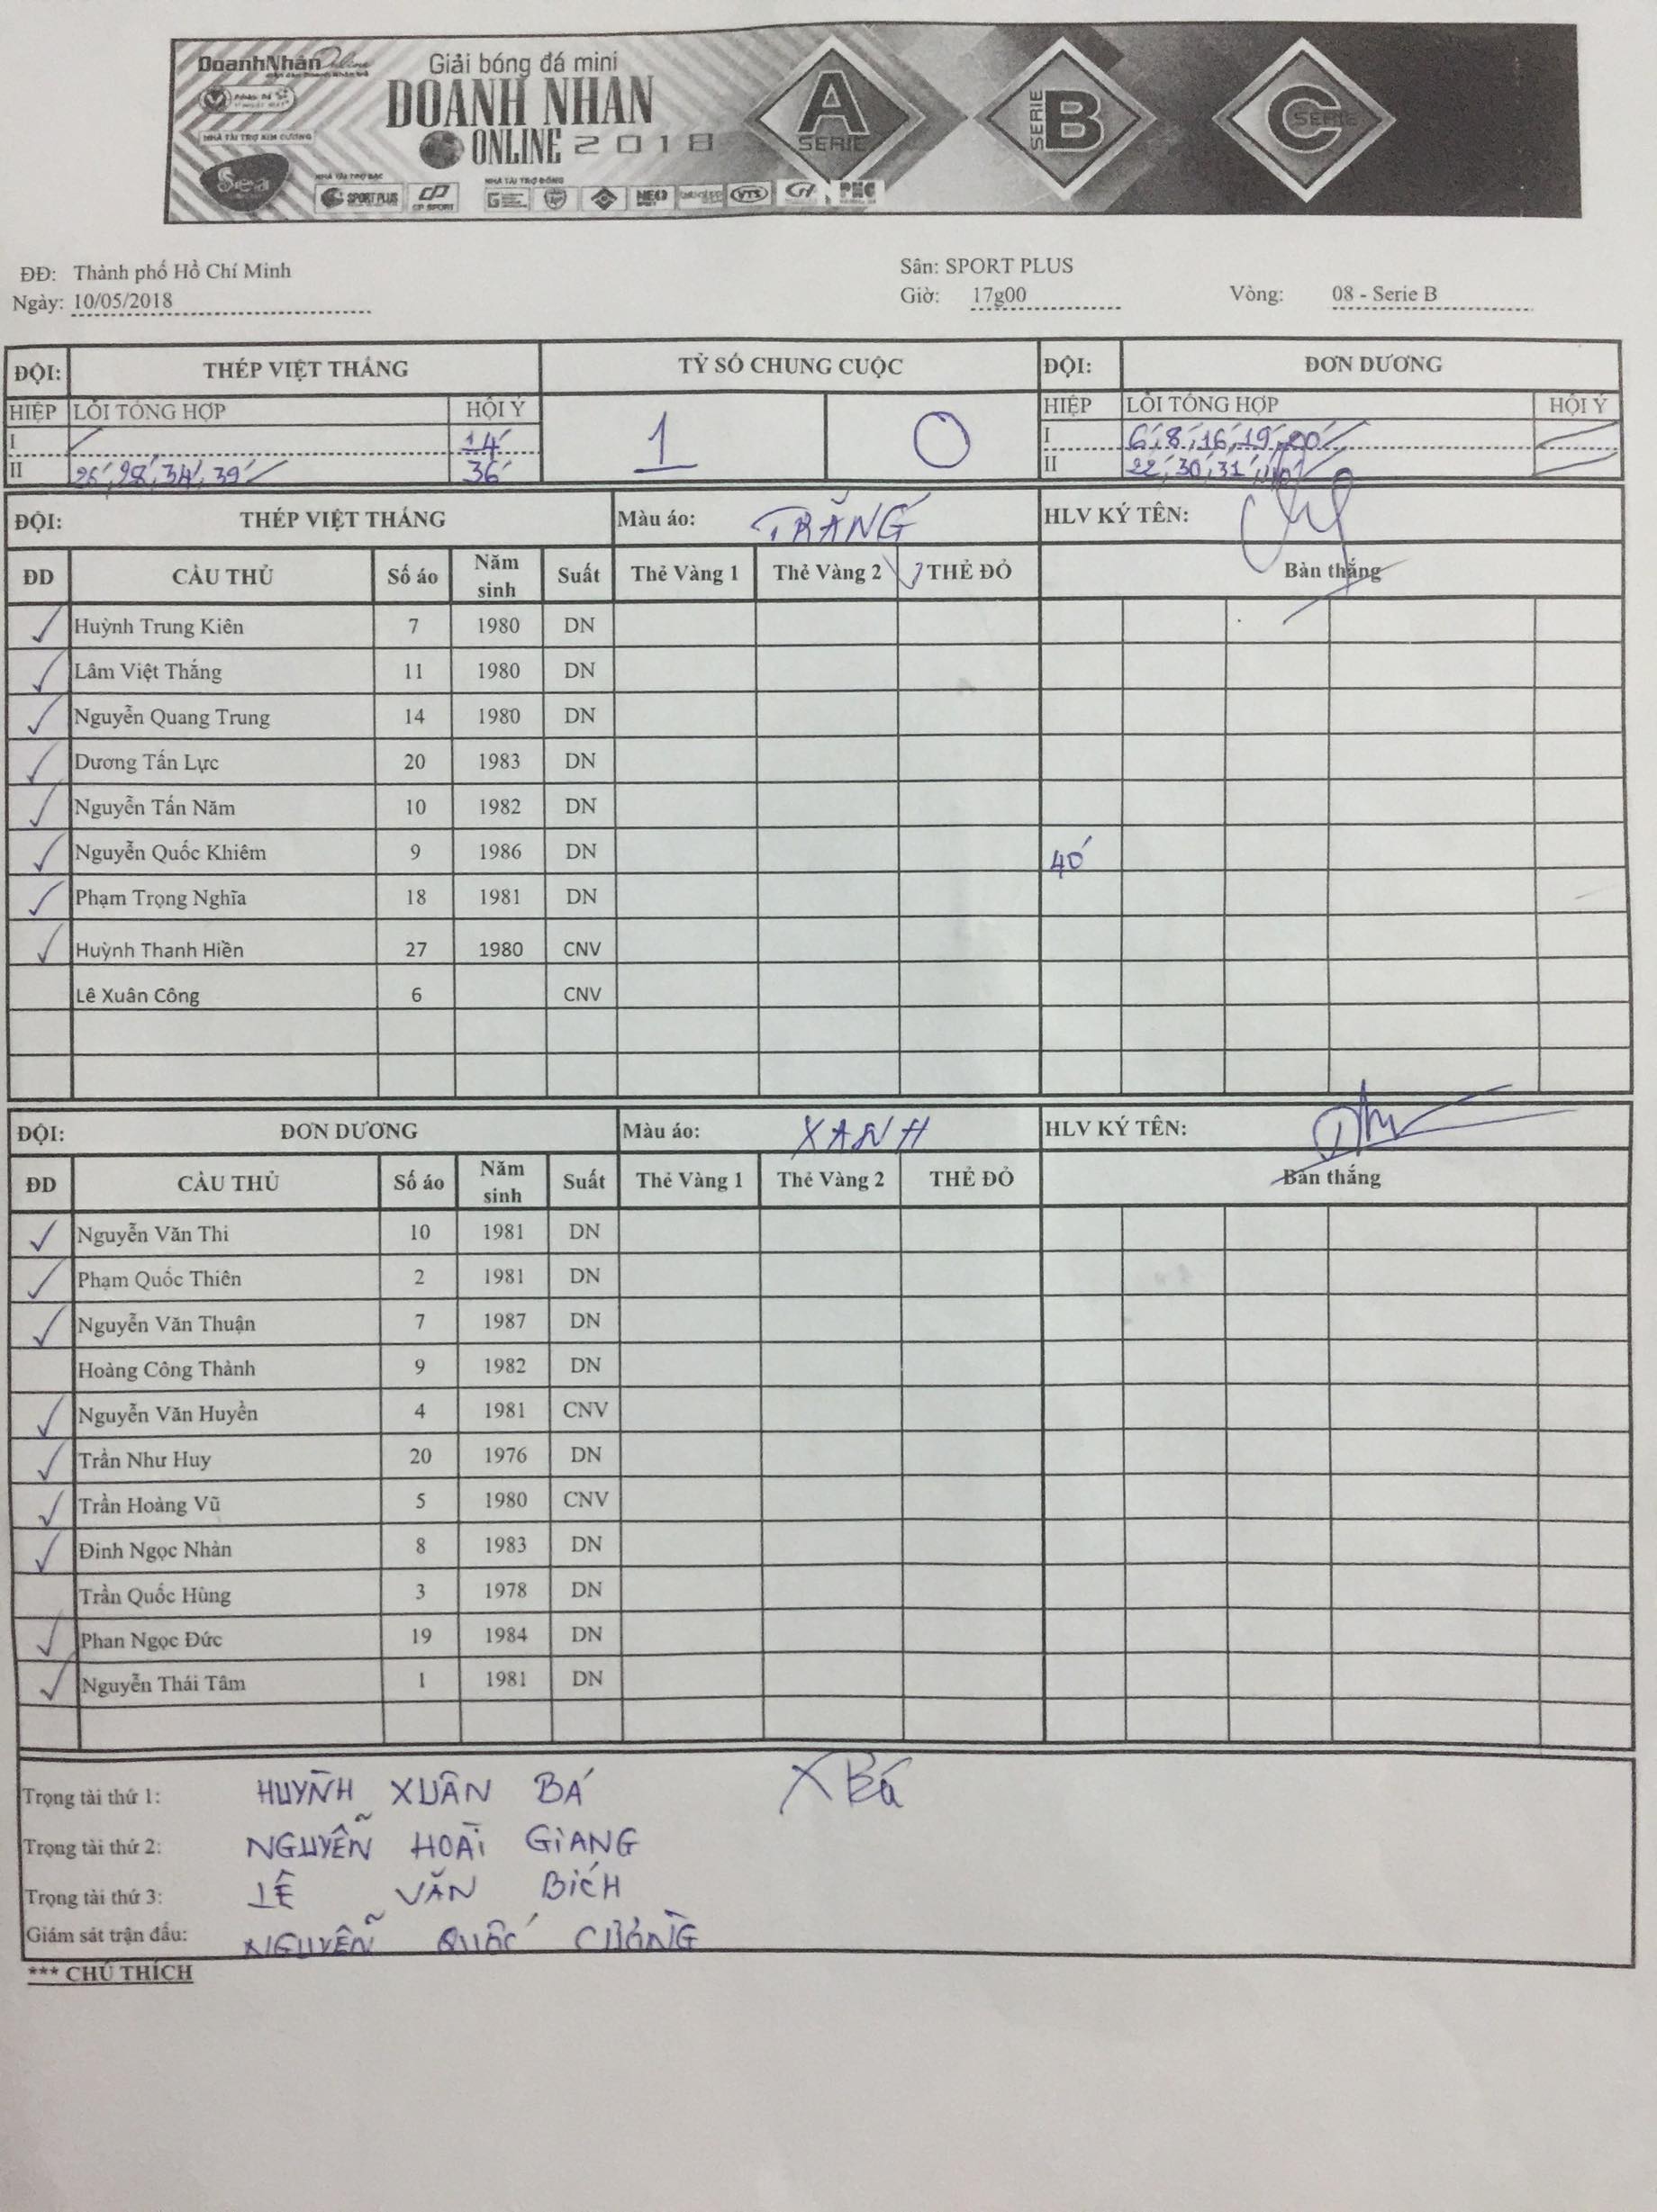 DoanhNhân Online
Giải bóng đá mini
DOANH NHAN
ONLINE 2018
NHÀ TÀI TRỢ KIM CƯƠNG
Sea
NHÀ TÀI TRỢ BẠC
SPORT PLUS
CP SPORT
NHÀ TÀI TRỢ ĐỒNG
VTS
A
SERIE
SERIE
B
C
SERIE
ĐĐ: Thành phố Hồ Chí Minh Sân: SPORT PLUS
Ngày: 10/05/2018 Giờ: 17g00 Vòng: 08 - Serie B
ĐỘI: THÉP VIỆT THẮNG TỶ SỐ CHUNG CUỘC ĐỘI: ĐƠN DƯƠNG
HIỆP LỖI TỔNG HỢP HỘI Ý 1 0 HIỆP LỖI TỔNG HỢP HỘI Ý
I 14' I 6', 8', 16', 19', 20'
II 25', 28', 34', 39' 36' II 22', 30', 31', 40'
ĐỘI: THÉP VIỆT THẮNG Màu áo: TRẮNG HLV KÝ TÊN:
ĐD CẦU THỦ Số áo Năm sinh Suất Thẻ Vàng 1 Thẻ Vàng 2 THẺ ĐỎ Bàn thắng
Huỳnh Trung Kiên 7 1980 DN
Lâm Việt Thắng 11 1980 DN
Nguyễn Quang Trung 14 1980 DN
Dương Tấn Lực 20 1983 DN
Nguyễn Tấn Năm 10 1982 DN
Nguyễn Quốc Khiêm 9 1986 DN 40'
Phạm Trọng Nghĩa 18 1981 DN
Huỳnh Thanh Hiền 27 1980 CNV
Lê Xuân Công 6 CNV
ĐỘI: ĐƠN DƯƠNG Màu áo: XANH HLV KÝ TÊN:
ĐD CẦU THỦ Số áo Năm sinh Suất Thẻ Vàng 1 Thẻ Vàng 2 THẺ ĐỎ Bàn thắng
Nguyễn Văn Thi 10 1981 DN
Phạm Quốc Thiên 2 1981 DN
Nguyễn Văn Thuận 7 1987 DN
Hoàng Công Thành 9 1982 DN
Nguyễn Văn Huyền 4 1981 CNV
Trần Như Huy 20 1976 DN
Trần Hoàng Vũ 5 1980 CNV
Đinh Ngọc Nhàn 8 1983 DN
Trần Quốc Hùng 3 1978 DN
Phan Ngọc Đức 19 1984 DN
Nguyễn Thái Tâm 1 1981 DN
Trọng tài thứ 1: HUỲNH XUÂN BÁ XBá
Trọng tài thứ 2: NGUYỄN HOÀI GIANG
Trọng tài thứ 3: LÊ VĂN BÍCH
Giám sát trận đấu: NGUYỄN QUỐC CƯỜNG
*** CHÚ THÍCH